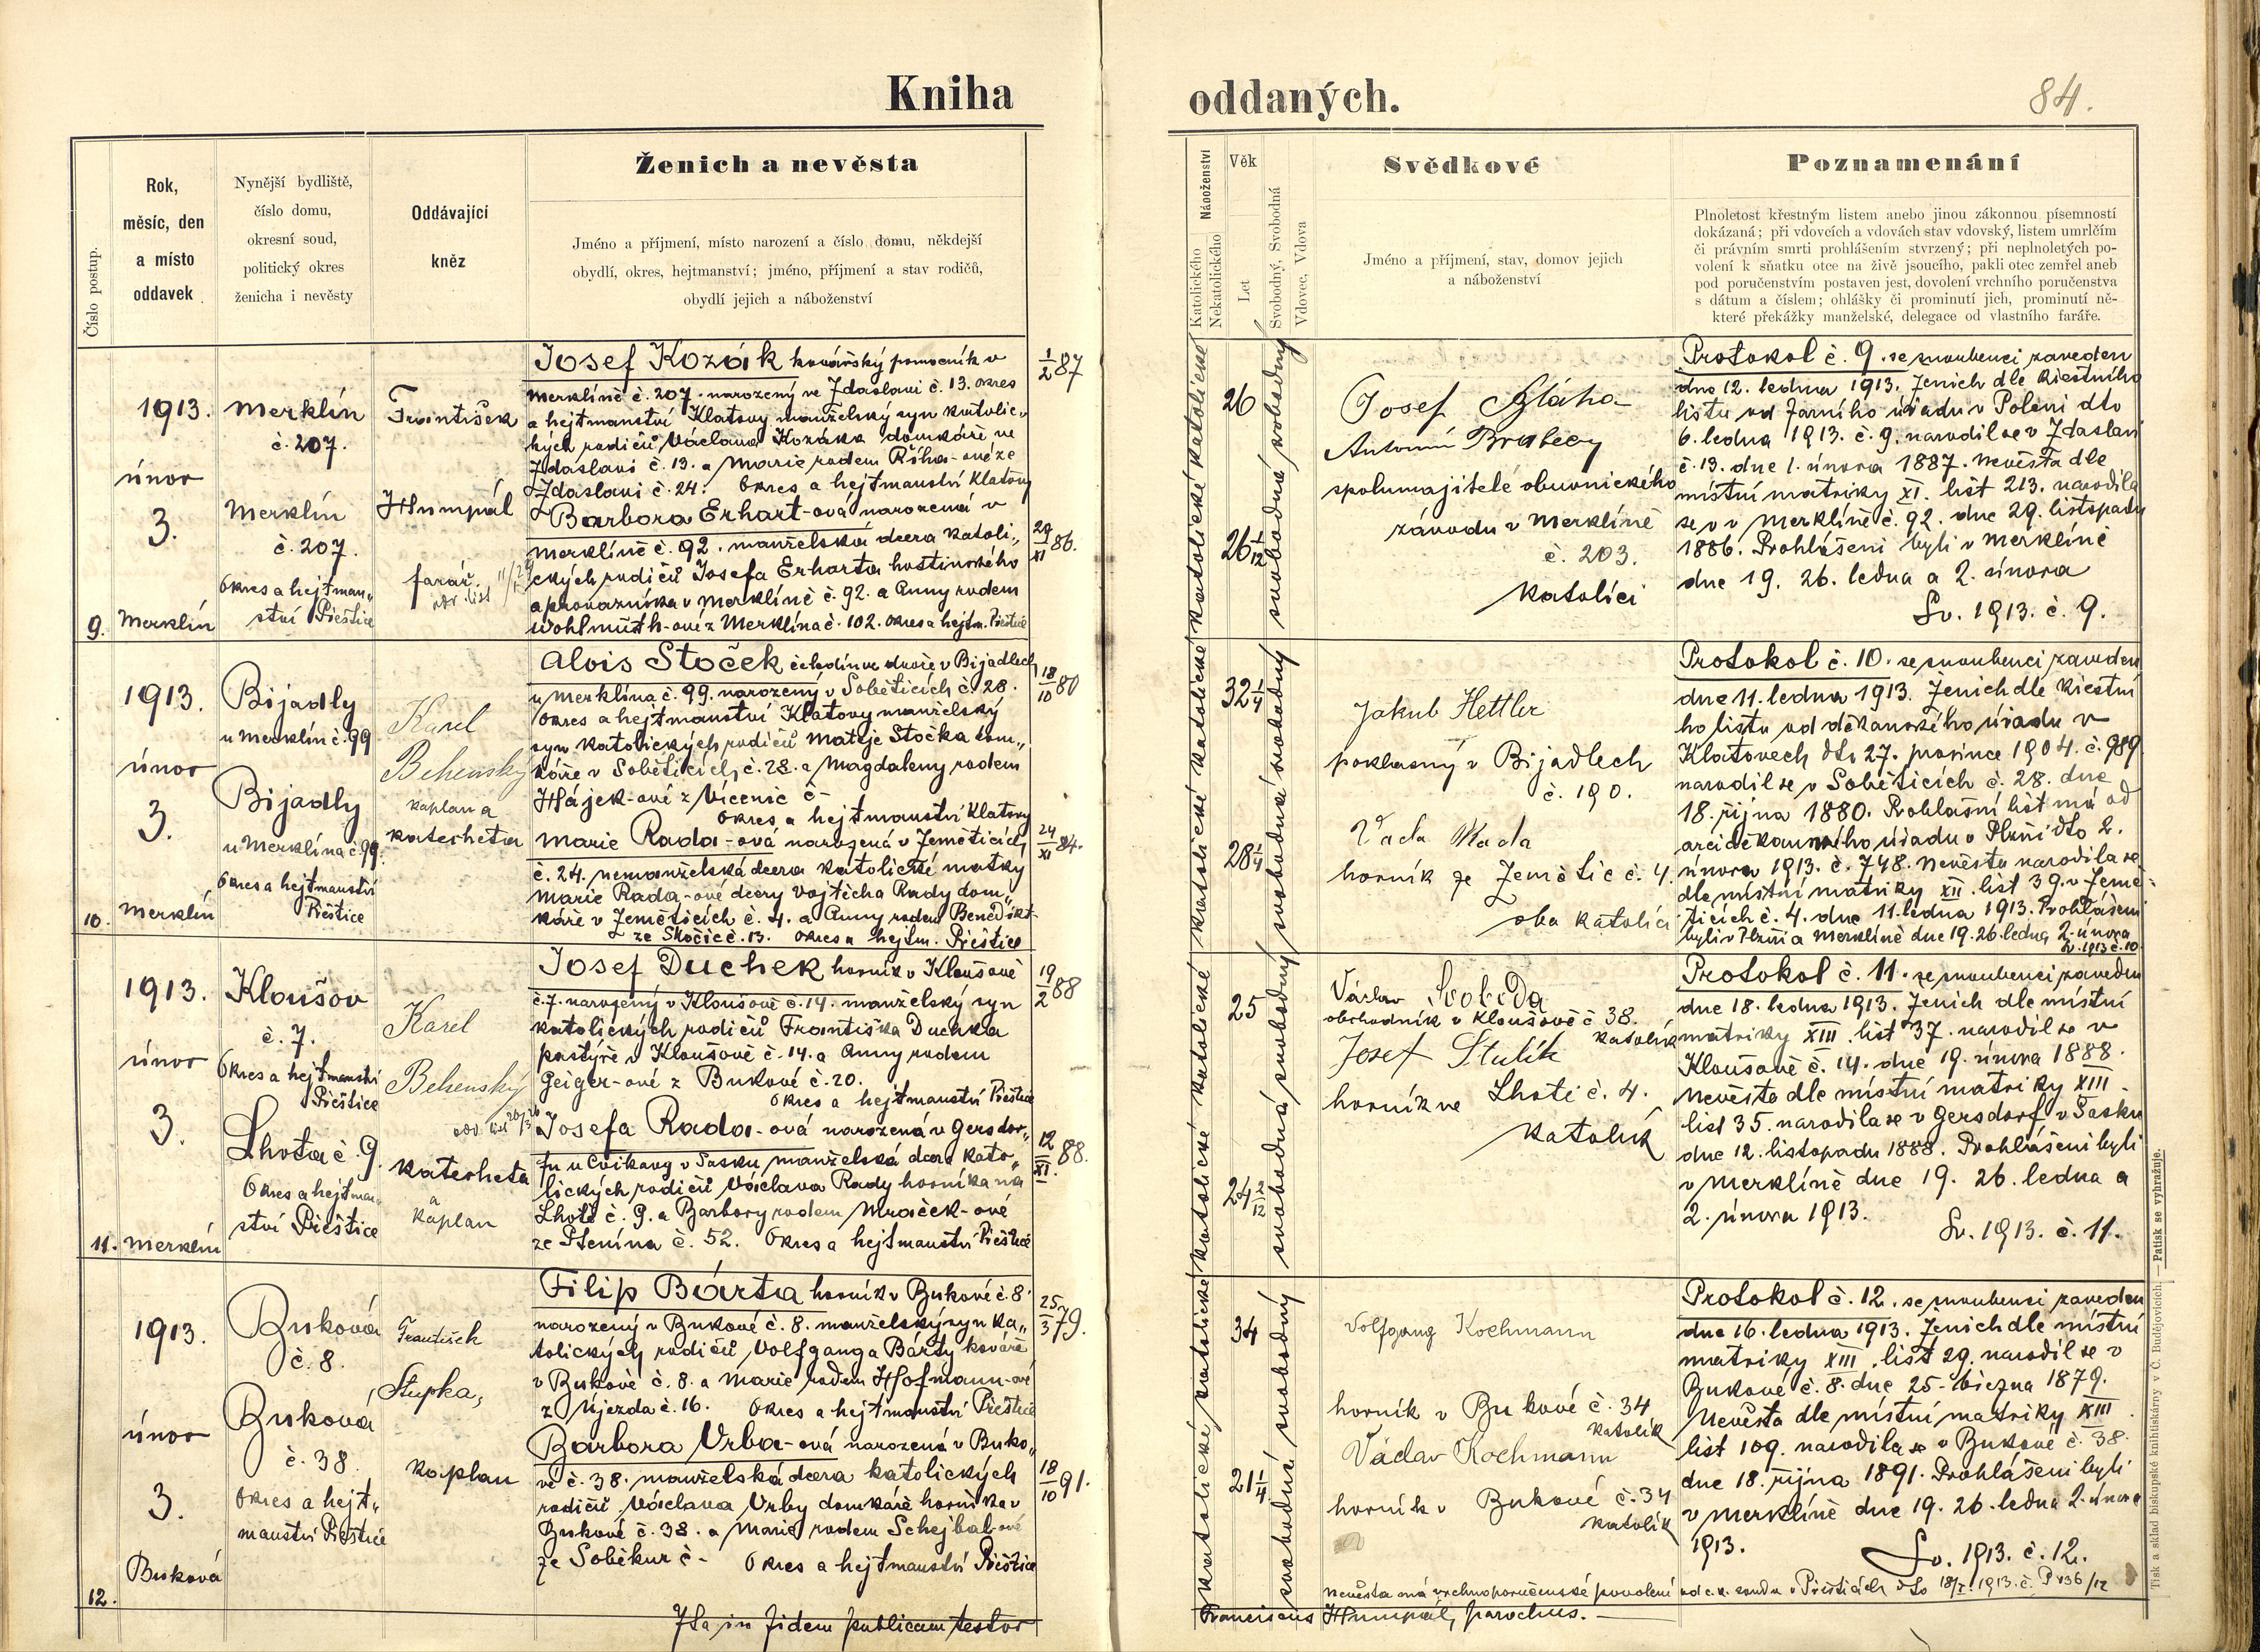 Kniha
oddaných.
84.
Číslo postup.
Rok,
měsíc, den
a místo
oddavek
Nynější bydliště,
číslo domu,
okresní soud,
politický okres
ženicha i nevěsty
Oddávající
kněz
Ženich a nevěsta
Jméno a příjmení, místo narození a číslo domu, někdejší
obydlí, okres, hejtmanství; jméno, příjmení a stav rodičů,
obydlí jejich a náboženství
Náboženství
Katolického
Nekatolického
Věk
Let
Svobodný, Svobodná
Vdovec, Vdova
Svědkové
Jméno a příjmení, stav, domov jejich
a náboženství
Poznamenání
Plnoletost křestným listem anebo jinou zákonnou písemností
dokázaná; při vdovcích a vdovách stav vdovský, listem umrlčím
či právním smrti prohlášením stvrzený; při neplnoletých po-
volení k sňatku otce na živě jsoucího, pakli otec zemřel aneb
pod poručenstvím postaven jest, dovolení vrchního poručenstva
s dátum a číslem; ohlášky či prominutí jich, prominutí ně-
které překážky manželské, delegace od vlastního faráře.
9.
1913.
únor
3.
Merklín
Merklín
č. 207.
Merklín
č. 207.
Okres a hejtman„
ství Přeštice
František
Humpál
farář.
Josef Kozák kovářský pomocník v
Merklíně č. 207. narozený ve Zdaslavi č. 13. okres
a hejtmanství Klatovy manželský syn katolic„
kých rodičů Václava Kozáka domkáře ve
Zdaslavi č. 13. a Marie rodem Říha-ové ze
Zdaslavi č. 24. Okres a hejtmanství Klatovy
Barbora Erhart-ová narozená v
Merklíně č. 92. manželská dcera katoli„
ckých rodičů Josefa Erharta hostinského
a provazníka v Merklíně č. 92. a Anny rodem
Wohlmuth-ové z Merklína č. 102. okres a hejtm. Přeštice
1/2 87
29/XI 86.
26
26 1/12
katolické katolické
svobodná svobodný
Josef Bláha
Antonín Brabecy
spolumajitelé obuvnického
závodu v Merklíně
č. 203.
katolíci
Protokol č. 9. se snoubenci zaveden
dne 12. ledna 1913. Ženich dle křestního
listu od farního úřadu v Poleni dto
6. ledna 1913. č. 9. narodil se v Zdaslavi
č. 13. dne 1. února 1887. Nevěsta dle
místní matriky XI. list 213. narodila
se v v Merklíně č. 92. dne 29. listopadu
1886. Prohlášeni byli v Merklíně
dne 19. 26. ledna a 2. února
Sv. 1913. č. 9.
10.
1913.
únor
3.
Merklín
Bijadly
u Merklín č. 99
Bijadly
u Merklína č. 99.
Okres a hejtmanství
Přeštice
Karel
Behenský
kaplan a
katecheta
Alois Stoček čeledín ve dvoře v Bijadlech
u Merklína č. 99. narozený v Soběticích č. 28.
Okres a hejtmanství Klatovy manželský
syn katolických rodičů Matěje Stočka dom„
káře v Soběticích č. 28. a Magdaleny rodem
Hájek-ové z Vícenic č -
Okres a hejtmanství Klatovy
Marie Rada-ová narozená v Zeměticích
č. 24. nemanželská dcera katolické matky
Marie Rada-ové dcery Vojtěcha Rady dom„
káře v Zemětících č. 4. a Anny rodem Benedikt-
ze Skočic č. 13. Okres a hejtm. Přeštice
18/10 80
24/XI 84.
32 1/4
28 1/4
katolické katolické
svobodná svobodný
Jakub Hettler
poklasný v Bijadlech
č. 190.
Rada
horník ze Zemětic č. 4.
oba katolíci
Protokol č. 10. se snoubenci zaveden
dne 11. ledna 1913. Ženich dle křestní
ho listu od děkanského úřadu v
Klatovech dto 27. prosince 1904. č. 989.
narodil se v Soběticích č. 28. dne
18. října 1880. Prohlašní list má od
arciděkanského úřadu v Plzni dto 2.
února 1913. č. 748. Nevěsta narodila se
dle místní matriky XII. list 39. v Země-
ticích č. 4. dne 11. ledna 1913. Prohlášeni
byli v Plzni a Merklíně dne 19. 26. ledna 2. února
Sv. 1913 č. 10.
11.
1913.
únor
3.
Merklín
Kloušov
č. 7.
Okres a hejtmanství
Přeštice
Lhota č. 9.
Okres a hejtman„
ství Přeštice
Karel
Behenský
katecheta
a
kaplan
Josef Duchek horník v Kloušově
č. 7. narozený v Kloušově č. 14. manželský syn
katolických rodičů Františka Duchka
pastýře v Kloušově č. 14. a Anny rodem
Geiger-ové z Bukové č. 20.
Okres a hejtmanství Přeštice
Josefa Rada-ová narozená v Gersdor„
fu u Cvikavy v Sasku, manželská dcera kato„
lických rodičů Václava Rady horníka na
Lhotě č. 9. a Barbory rodem Mraček-ové
ze Ptenína č. 52. Okres a hejtmanství Přeštice
19/2 88
12/XI. 88.
25
24 2/12
katolické katolické
svobodná svobodný
Václav Svoboda
obchodník v Kloušově č 38.
katolík
Josef Stulík
horník ve Lhotě č. 4.
katolík
Protokol č. 11. se snoubenci zaveden
dne 18. ledna 1913. Ženich dle místní
matriky XIII. list 37. narodil se v
Kloušově č. 14. dne 19. února 1888.
Nevěsta dle místní matriky XIII.
list 35. narodila se v Gersdorf, v Sasku
dne 12. listopadu 1888. Prohlášeni byli
v Merklíně dne 19. 26. ledna a
2. února 1913.
Sv. 1913. č. 11.
12.
1913.
únor
3.
Buková
Buková
č. 8.
Buková
č. 38.
Okres a hejt„
manství Přeštice
František
Stupka,
kaplan
Filip Bárta horník v Bukové č. 8
narozený v Bukové č. 8. manželský syn ka„
tolických rodičů Volfganga Bárty kováře
v Bukové č. 8. a Marie rodem Hofmann-ové
z Újezda č. 16. Okres a hejtmanství Přeštice
Barbora Vrba-ová narozená v Buko„
vé č. 38. manželská dcera katolických
rodičů Václava Vrby domkáře horníka v
Bukové č. 38. a Marie rodem Schejbal-ové
ze Soběkur č - Okres a hejtmanství Přeštice
25/3 79.
18/10 91.
34
21 1/4
katolické katolické
svobodná svobodný
Volfgang Kochmann
horník v Bukové č. 34
katolík
Václav Kochmann
horník v Bukové č. 34
katolík
Protokol č. 12. se snoubenci zaveden
dne 16. ledna 1913. Ženich dle místní
matriky XIII. list 29. narodil se v
Bukové č. 8. dne 25. března 1879.
Nevěsta dle místní matriky XIII.
list 109. narodila se v Bukové č. 38.
dne 18. října 1891. Prohlášeni byli
v Merklíně dne 19. 26. ledna 2. února
1913.
Sv. 1913. č. 12.
Nevěsta má vrchnoporučenské povolení od c. k. soudu v Přešticích dto 18/I. 1913. č. P 136/12
Ita in fidem publicam testor
Franciscus Humpál, parochus.
Tisk a sklad biskupské knihtiskárny v Č. Budějovicích. — Patisk se vyhražuje.